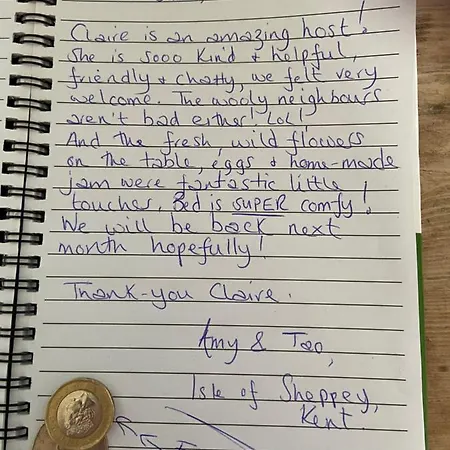 Claire is an amazing host!
She is sooo kind & helpful,
friendly & chatty, we felt very
welcome. The wooly neighbours
aren't bad either! Lol!
And the fresh, wild flowers
on the table, eggs & home-made
jam were fantastic little
touches. Bed is SUPER comfy!
We will be back next
month hopefully!
Thank-you Claire.
Amy & Tao,
Isle of Sheppey,
Kent.